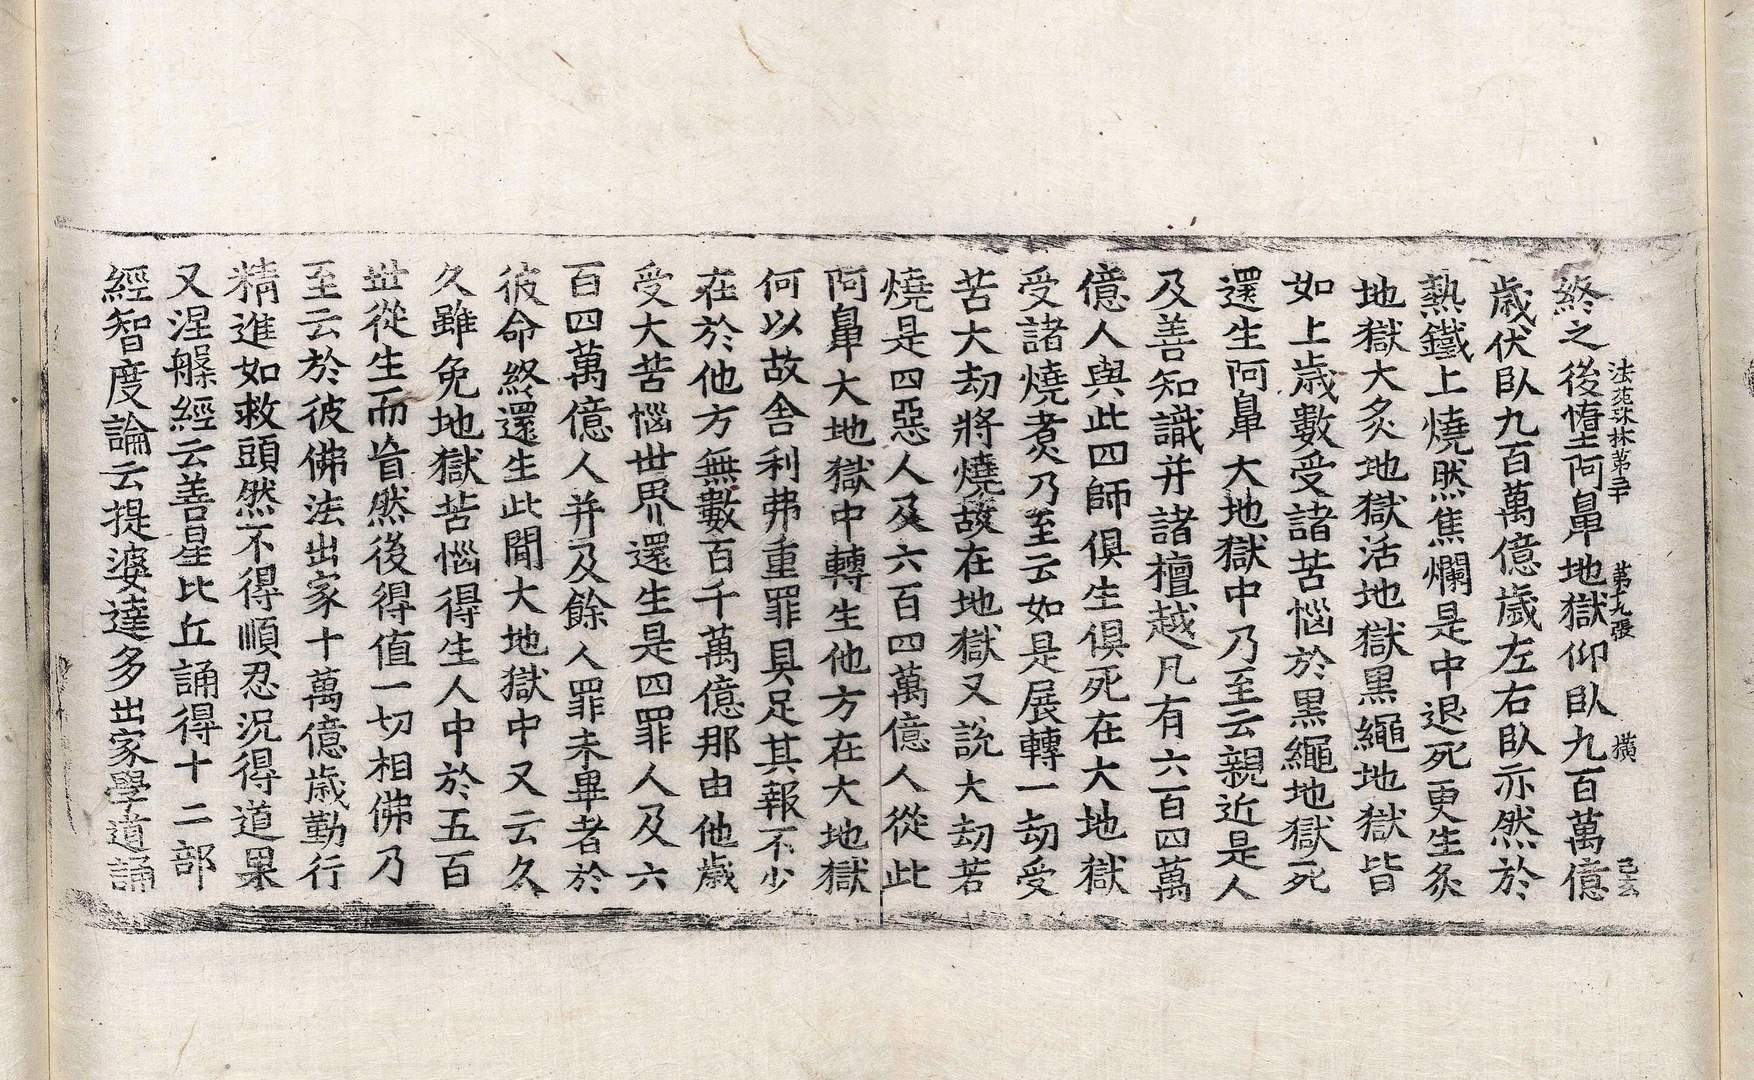 法苑珠林第 第十九張 橫
終之後墮阿鼻地獄仰臥九百萬億
歲伏臥九百萬億歲左右臥亦然於
熱鐵上燒燃焦爛是中退死更生炙
地獄大炙地獄活地獄黑繩地獄皆
如上歲數受諸苦惱於黑繩地獄死
還生阿鼻大地獄中乃至云親近是人
及善知識并諸檀越凡有六百四萬
億人與此四師俱生俱死在大地獄
受諸燒煮乃至云如是展轉一劫受
苦大劫將燒故在地獄又說大劫若
燒是四惡人及六百四萬億人從此
阿鼻大地獄中轉生他方在大地獄
何以故舍利弗重罪具足其報不少
在於他方無數百千萬億那由他歲
受大苦惱世界還生是四罪人及六
百四萬億人并及餘人罪未畢者於
彼命終還生此間大地獄中又云久
久雖免地獄苦惱得生人中於五百
世從生而盲然後得值一切相佛乃
至云於彼佛法出家十萬億歲勤行
精進如救頭然不得順忍況得道果
又涅槃經云善星比丘誦得十二部
經智度論云提婆達多出家學道誦